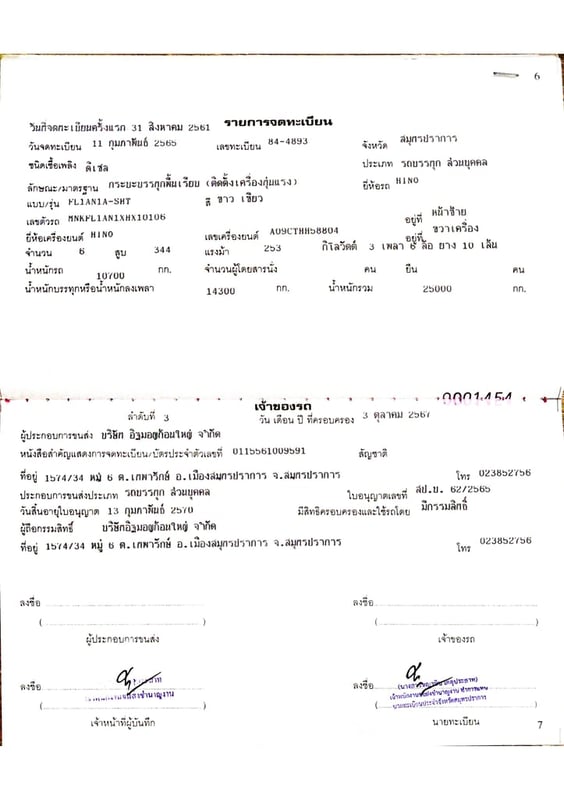 6
รายการจดทะเบียน
วันที่จดทะเบียนครั้งแรก 31 สิงหาคม 2561
วันจดทะเบียน 11 กุมภาพันธ์ 2565 เลขทะเบียน 84-4893 จังหวัด สมุทรปราการ
ชนิดเชื้อเพลิง ดีเซล ประเภท รถบรรทุก ส่วนบุคคล
ลักษณะ/มาตรฐาน กระบะบรรทุกพื้นเรียบ (ติดตั้งเครื่องทุ่นแรง) ยี่ห้อรถ HINO
แบบ/รุ่น FL1AN1A-SHT สี ขาว เขียว
เลขตัวรถ MNKFL1AN1XHX10106 อยู่ที่ หน้าซ้าย
ยี่ห้อเครื่องยนต์ HINO เลขเครื่องยนต์ A09CTHH58804 อยู่ที่ ขวาเครื่อง
จำนวน 6 สูบ 344 แรงม้า 253 กิโลวัตต์ 3 เพลา 6 ล้อ ยาง 10 เส้น
น้ำหนักรถ 10700 กก. จำนวนผู้โดยสารนั่ง คน ยืน คน
น้ำหนักบรรทุกหรือน้ำหนักลงเพลา 14300 กก. น้ำหนักรวม 25000 กก.
0001454
เจ้าของรถ
ลำดับที่ 3 วัน เดือน ปี ที่ครอบครอง 3 ตุลาคม 2567
ผู้ประกอบการขนส่ง บริษัท อิฐมอญก้อนใหญ่ จำกัด
หนังสือสำคัญแสดงการจดทะเบียน/บัตรประจำตัวเลขที่ 0115561009591 สัญชาติ
ที่อยู่ 1574/34 หมู่ 6 ต.เทพารักษ์ อ.เมืองสมุทรปราการ จ.สมุทรปราการ โทร 023852756
ประกอบการขนส่งประเภท รถบรรทุก ส่วนบุคคล ใบอนุญาตเลขที่ สป.บ. 62/2565
วันสิ้นอายุใบอนุญาต 13 กุมภาพันธ์ 2570 มีสิทธิครอบครองและใช้รถโดย มีกรรมสิทธิ์
ผู้ถือกรรมสิทธิ์ บริษัทอิฐมอญก้อนใหญ่ จำกัด
ที่อยู่ 1574/34 หมู่ 6 ต.เทพารักษ์ อ.เมืองสมุทรปราการ จ.สมุทรปราการ โทร 023852756
ลงชื่อ ลงชื่อ
( ) ( )
ผู้ประกอบการขนส่ง เจ้าของรถ
ลงชื่อ ลงชื่อ
( ) ( )
เจ้าพนักงานขนส่งชำนาญงาน ทำการแทน
นายทะเบียนประจำจังหวัดสมุทรปราการ
เจ้าหน้าที่ผู้บันทึก นายทะเบียน
7